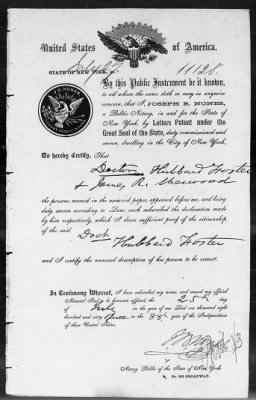 United States of America.
11128.
STATE OF NEW YORK,
By this Public Instrument be it known,
to all whom the same doth or may in anywise
concern, that I, JOSEPH B. NONES,
a Public Notary, in and for the State of
New York by Letters Patent under the
Great Seal of the State, duly commissioned and
sworn, dwelling in the City of New York.
Do hereby Certify, That
Doctor Hubbard Foster
& James R. Sherwood
the persons named in the annexed paper, appeared before me, and being
duly sworn according to Law, each subscribed the declaration made
by him respectively, which I deem sufficient proof of the citizenship
of the said
Doct Hubbard Foster
and I certify the annexed description of his person to be correct.
In Testimony Whereof, I have subscribed my name and caused my official
Notarial Seal to be affixed the 25th day
of July in the year of our Lord one thousand eight
hundred and sixty three in the 88th year of Independence of
these United States.
Notary Public of the State of New York.
BROADWAY.